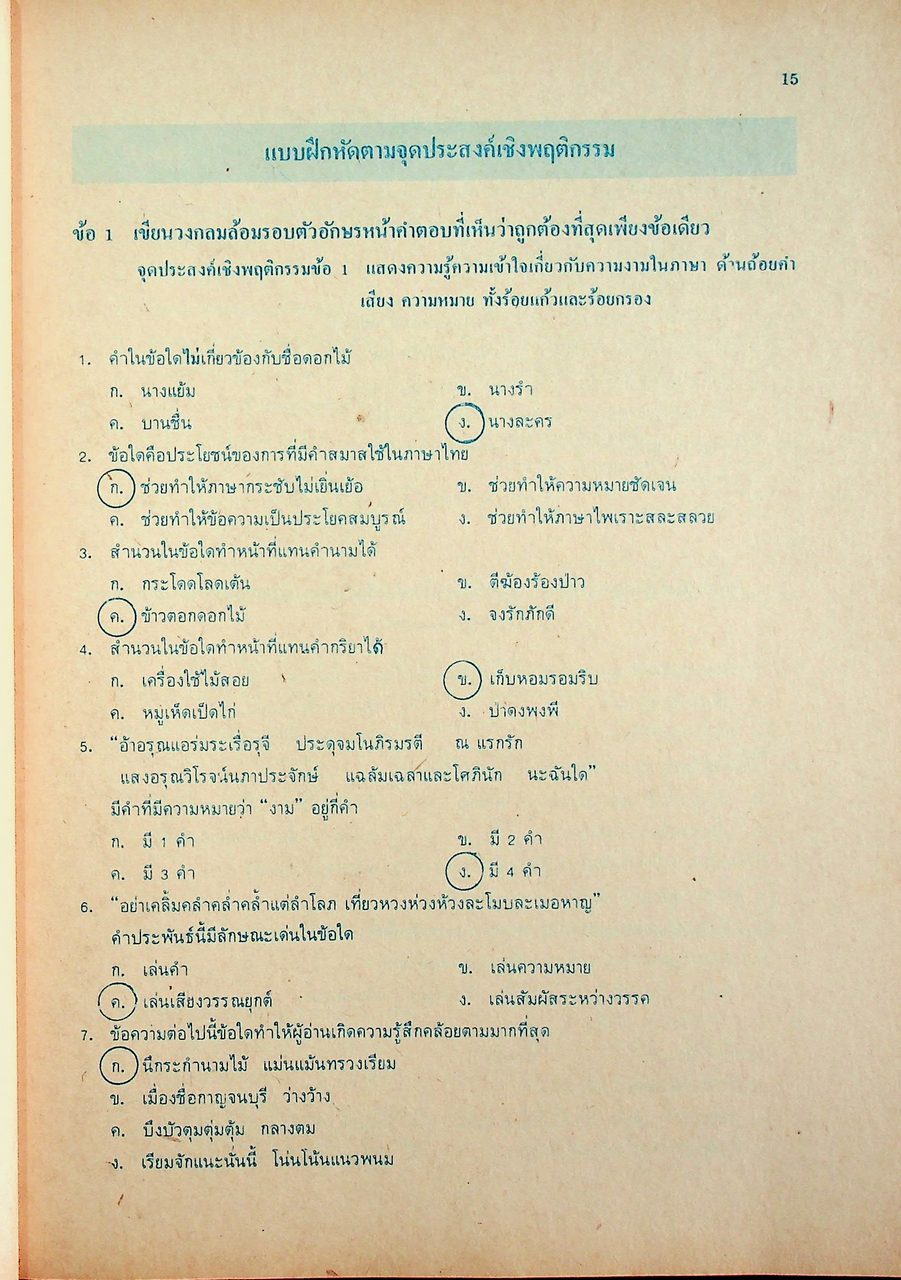 15
แบบฝึกหัดตามจุดประสงค์เชิงพฤติกรรม
ข้อ 1 เขียนวงกลมล้อมรอบตัวอักษรหน้าคำตอบที่เห็นว่าถูกต้องที่สุดเพียงข้อเดียว
จุดประสงค์เชิงพฤติกรรมข้อ 1 แสดงความรู้ความเข้าใจเกี่ยวกับความงามในภาษา ด้านถ้อยคำ
เสียง ความหมาย ทั้งร้อยแก้วและร้อยกรอง
1. คำในข้อใดไม่เกี่ยวข้องกับชื่อดอกไม้
ก. นางแย้ม ข. นางรำ
ค. บานชื่น ง. นางละคร
2. ข้อใดคือประโยชน์ของการที่มีคำสมาสใช้ในภาษาไทย
ก. ช่วยทำให้ภาษากระชับไม่เยิ่นเย้อ ข. ช่วยทำให้ความหมายชัดเจน
ค. ช่วยทำให้ข้อความเป็นประโยคสมบูรณ์ ง. ช่วยทำให้ภาษาไพเราะสละสลวย
3. สำนวนในข้อใดทำหน้าที่แทนคำนามได้
ก. กระโดดโลดเต้น ข. ตีฆ้องร้องป่าว
ค. ข้าวตอกดอกไม้ ง. จงรักภักดี
4. สำนวนในข้อใดทำหน้าที่แทนคำกริยาได้
ก. เครื่องใช้ไม้สอย ข. เก็บหอมรอมริบ
ค. หมูเห็ดเป็ดไก่ ง. ป่าดงพงพี
5. “อ้าอรุณแอร่มระเรื่อรุจี ประดุจมโนภิรมรตี ณ แรกรัก
แสงอรุณวิโรจน์นภาประจักษ์ แฉล้มเฉลาและโศภินัก นะฉันใด”
มีคำที่มีความหมายว่า “งาม” อยู่กี่คำ
ก. มี 1 คำ ข. มี 2 คำ
ค. มี 3 คำ ง. มี 4 คำ
6. “อย่าเคลิ้มคลำคล่ำคล้ำแต่ลำโลภ เที่ยวหวงห่วงห้วงละโมบละเมอหาญ”
คำประพันธ์นี้มีลักษณะเด่นในข้อใด
ก. เล่นคำ ข. เล่นความหมาย
ค. เล่นเสียงวรรณยุกต์ ง. เล่นสัมผัสระหว่างวรรค
7. ข้อความต่อไปนี้ข้อใดทำให้ผู้อ่านเกิดความรู้สึกคล้อยตามมากที่สุด
ก. นึกระกำนามไม้ แม่นแม้นทรวงเรียม
ข. เมื่องชื่อกาญจนบุรี ว่างว้าง
ค. บึงบัวตุมตุ่มตุ้ม กลางตม
ง. เรียมจักแนะนั่นนี้ โน่นโน้นแนวพนม